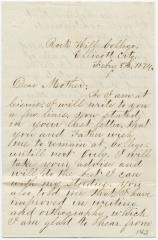 Rock Hill College
Ellicott City.
Feby 8th 1874.
Dear Mother;
As I am at
leisure I will write to you
a few lines, you stated
in your last letter, that
you and Father wish
me to remain at College
untill next July. I will
take your advise and
will do the best I can
with my studies. You
also told me that I have
improved in writing
and orthography, which
I am glad to hear from